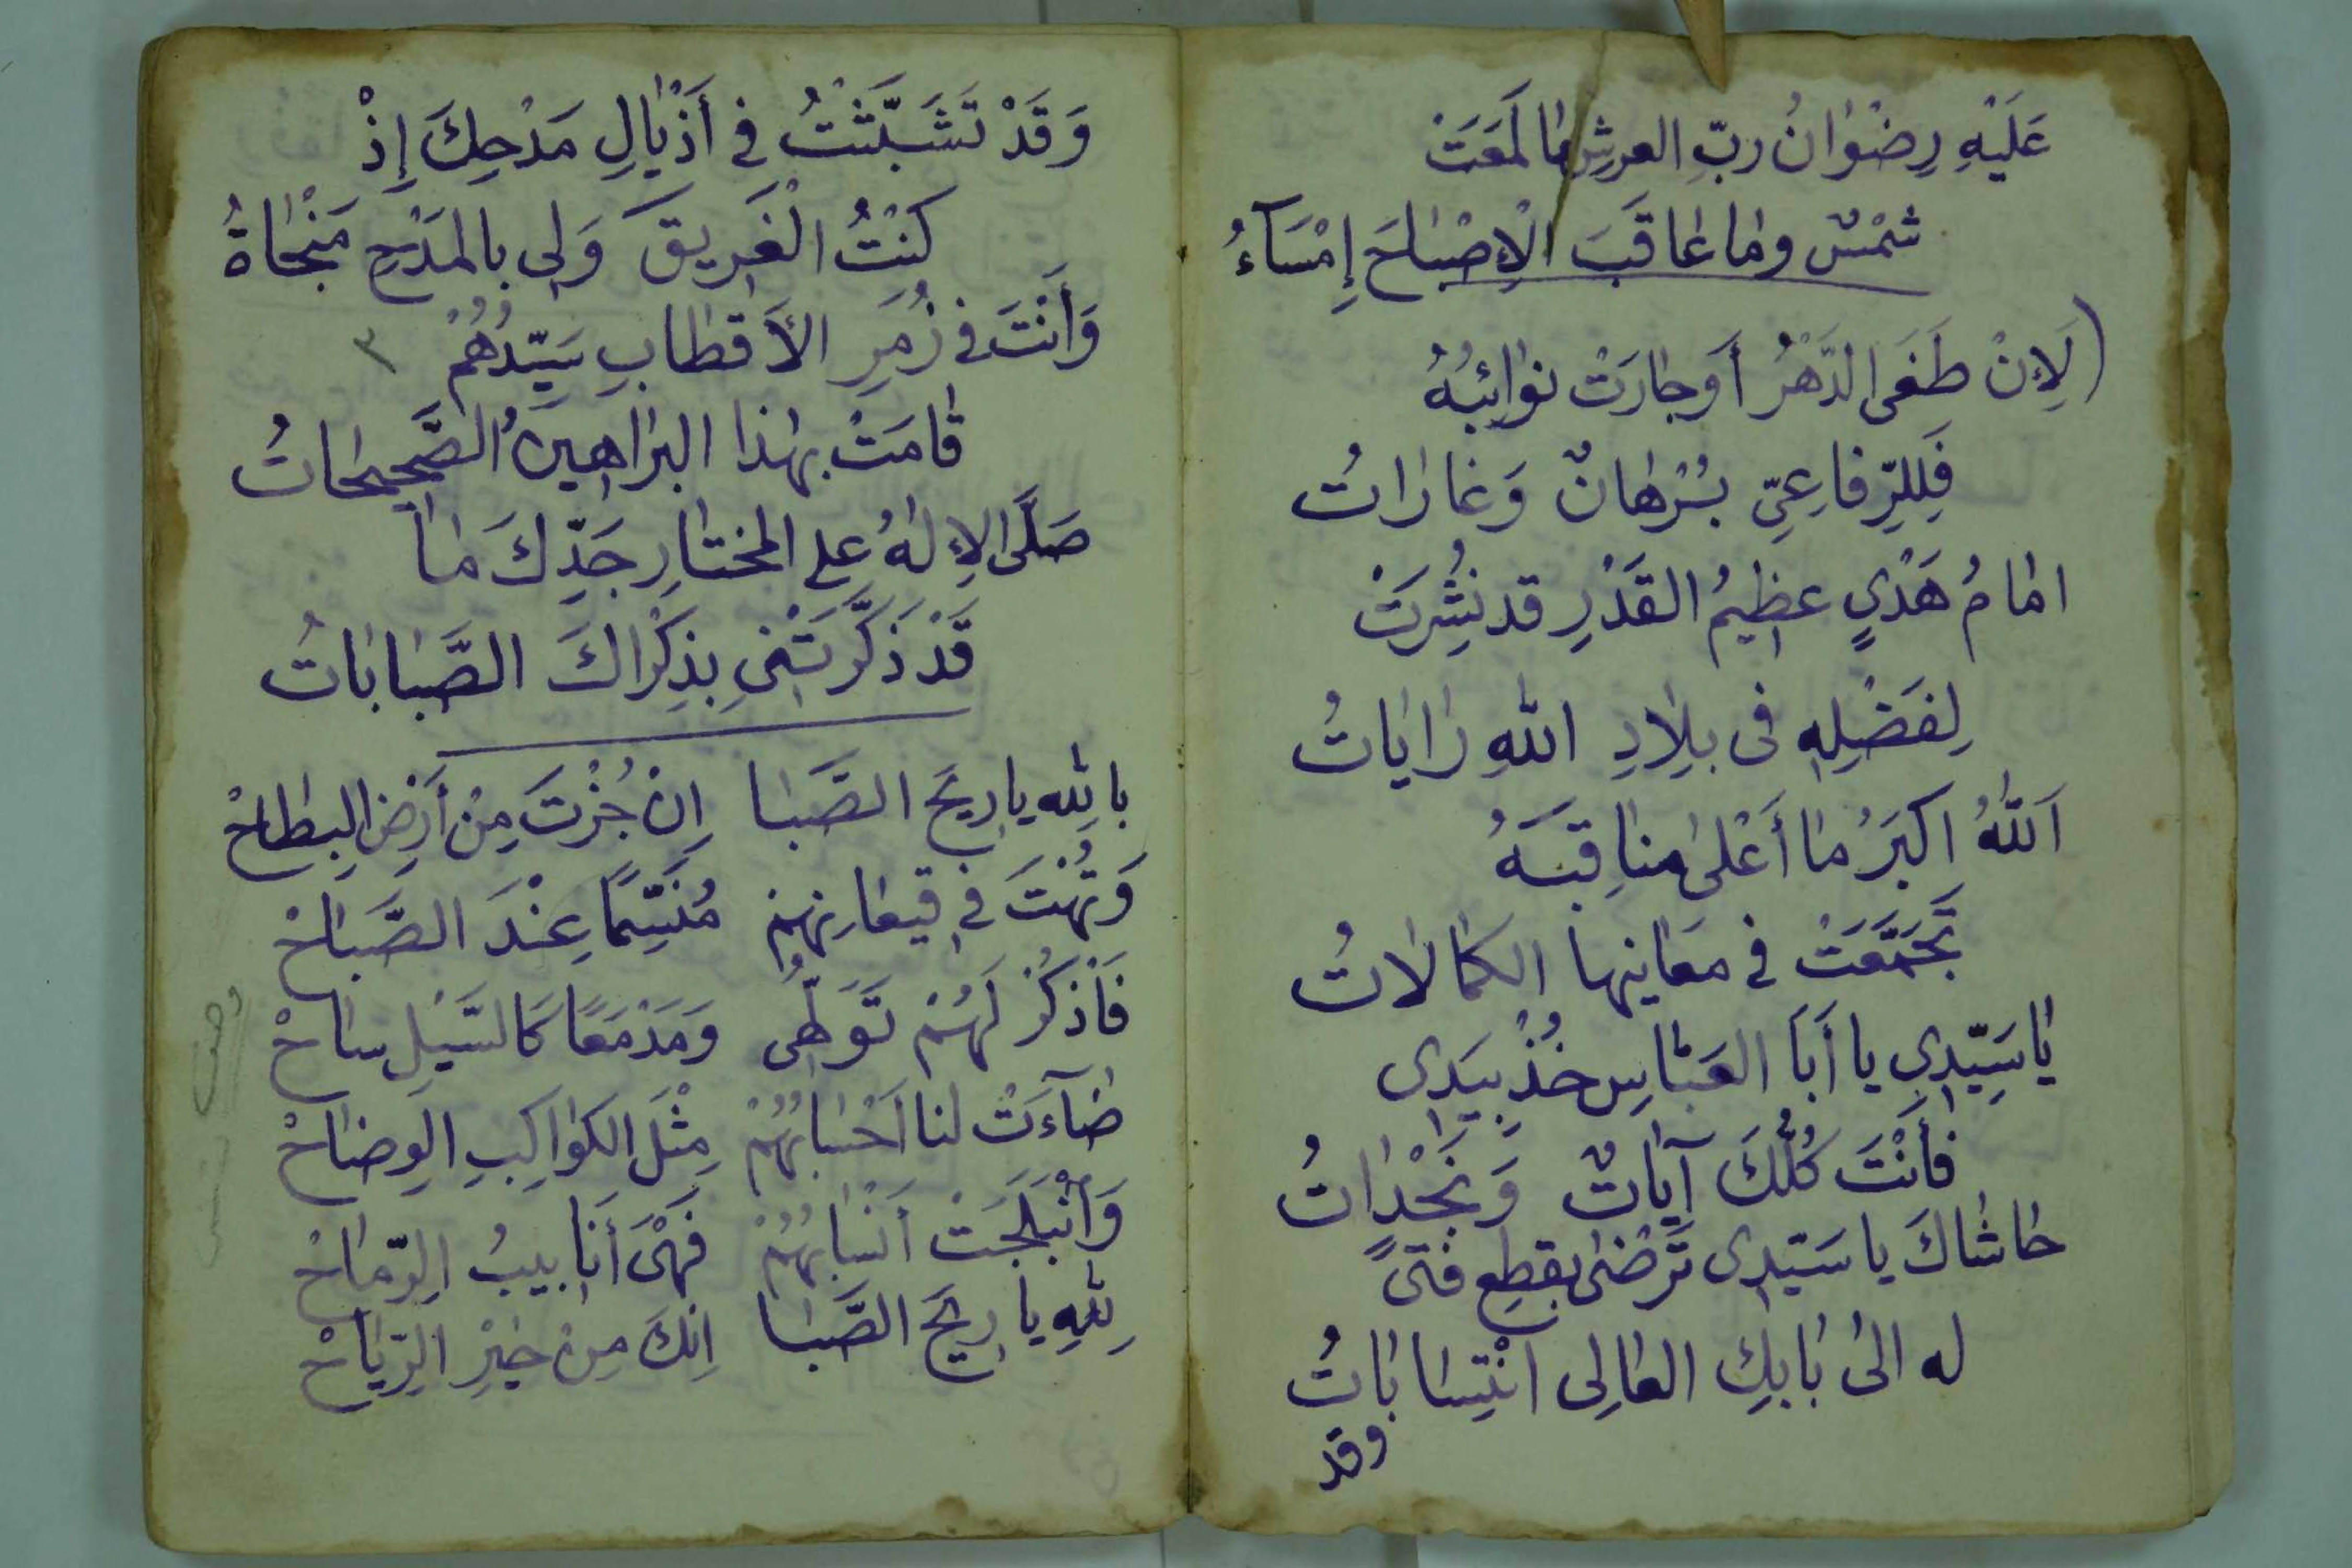 عَلَيْهِ رِضْوَانُ ربِّ العرشِ مَا لَمَعَتْ
شَمْسٌ وما عَاقَبَ الْإِصْبَاحَ إِمْسَآءُ
(لَإِنْ طَغَى الدَّهْرُ أَوجَارَتْ نوَائِبُهُ
فَلِلرِّفاعِيِّ بُرْهَانٌ وَغَارَاتُ
امَامُ هَدْيٍ عظِيمُ القَدْرِ قد نُشِرَتْ
لِفَضْلِهِ فى بِلَادِ اللهِ رَايَاتُ
اَللهُ اكبَرُ مَا أَعْلَى مناقِبَهُ
تَجَمَّعَتْ في مَعَانِيهَا الكَمَالَاتُ
يَا سَيِّدِي يا أَبَا العَبَّاسِ خُذْ بِيَدِى
فأَنْتَ كُلُّكَ آيَاتٌ وَنَجْدَاتُ
حَاشَاكَ يا سَيّدِى تَرْضَى بقطعِ فتىً
له الىَ بَابِكِ العَالِى انْتِسَابَاتُ
وقد
وَقَدْ تَشَبَّثْتُ في أَذْيَالِ مَدْحِكَ إِذْ
كُنْتُ الْغَرِيقَ وَلِى بالمَدْحِ مَنْجَاةُ
وَأَنْتَ في زُمَرِ الأَقطَابِ سَيِّدُهُمْ ٣
قَامَتْ بهَذا البرَاهِينُ الصَّحِيحَاتُ
صَلَّى الإِلهُ على المختَارِ جَدِّكَ مَا
قَدْ ذَكَّرَتْنِي بِذِكْرَاكَ الصَّبَابَاتُ
باللهِ يا رِيحَ الصَّبَا إِنْ جُزْتَ مِنْ أَرْضِ البِطَاحْ
وَتُهْتَ في قيعَانِهِمْ مُنَسِّمًا عِنْدَ الصَّبَاحْ
فَاذْكُرْ لَهُمْ تَوَلُّهِى وَمَدْمَعًا كَالسَّيْلِ سَاحْ
ضَآءَتْ لنا اَحْسَابُهُمْ مِثْلَ الكوَاكِبِ الوِضَاحْ
وَانْبَلَجَتْ اَنْسَابُهُمْ فَهْىَ أَنَابيبُ الرِّمَاحْ
لِلهِ يا رِيحَ الصَّبَا اِنكَ مِنْ خَيْرِ الرِّيَاحْ